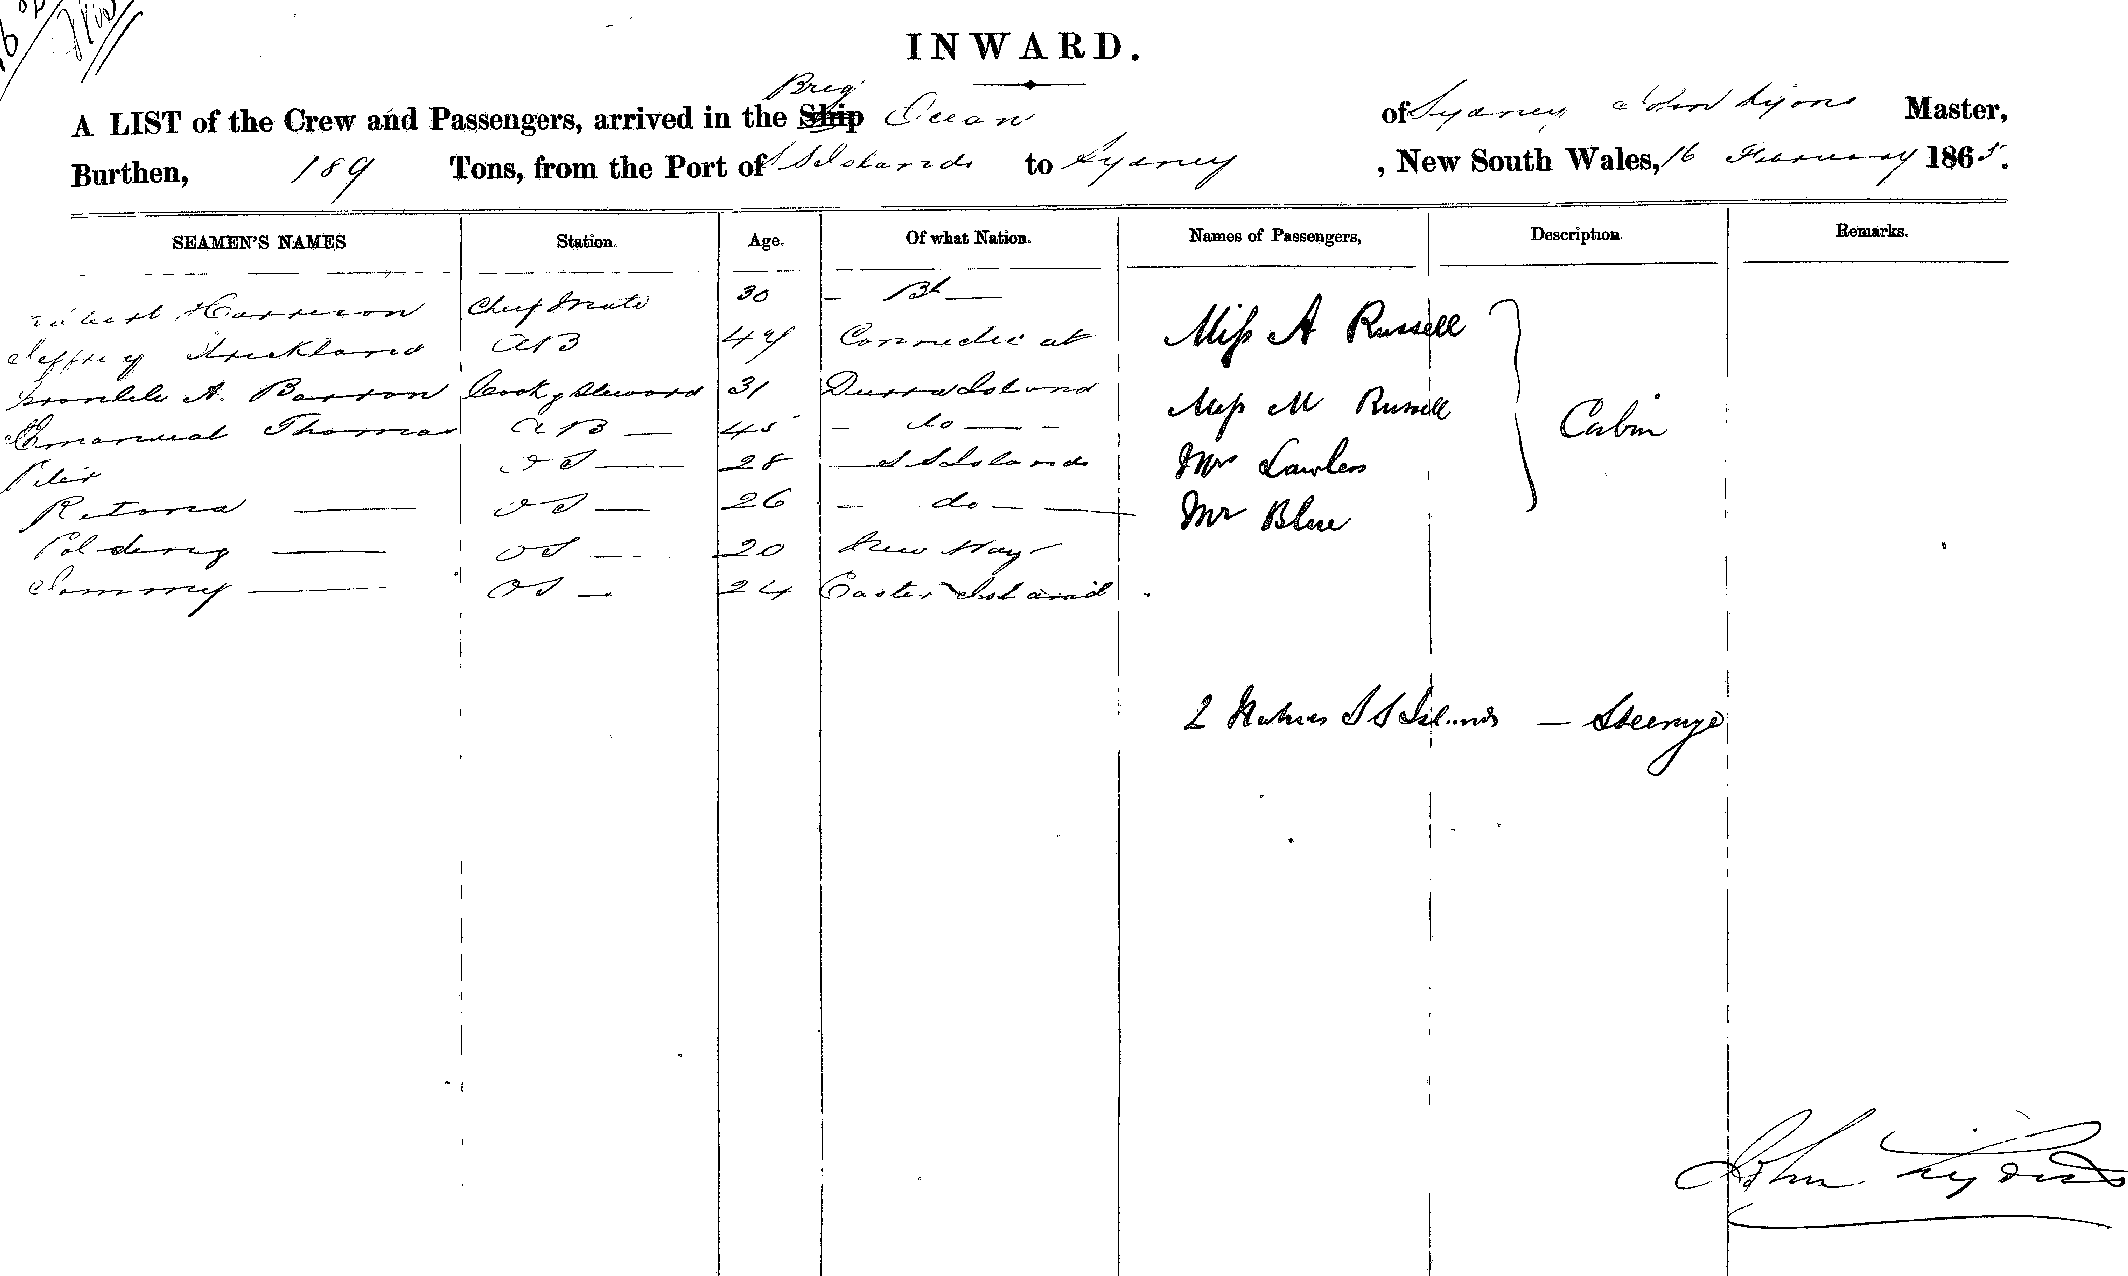 INWARD.
Brig
A LIST of the Crew and Passengers, arrived in the Ship Ocean of Sydney John Lyons Master,
Burthen, 189 Tons, from the Port of S S Islands to Sydney, New South Wales, 16 February 1865.
SEAMEN'S NAMES Station. Age. Of what Nation. Names of Passengers, Description. Remarks.
Robert Harrison Chief Mate 30 Bh
Jeffrey Strickland AB 44 Connecticut Miss A Russell
A. Barron Cook & Steward 31 Island Miss M Russell
Emanueal Thomas AB 45 do Cabin
Peter OS 28 S S Islands Mrs Lawless
Rotona OS 26 do Mr Blue
OS 20 New
Tommy OS 24 Easter Island
2 Natives S S Islands Steerage
John Lyons